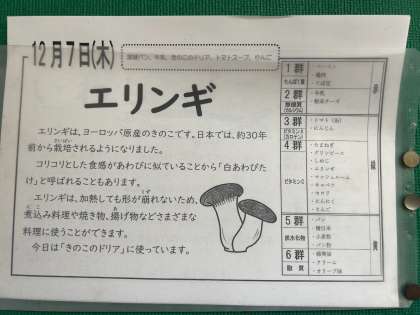 12月7日(木)
黒糖パン、牛乳、きのこのドリア、トマトスープ、りんご
エリンギ
エリンギは、ヨーロッパ原産のきのこです。日本では、約30年
前から栽培されるようになりました。
コリコリとした食感があわびに似ていることから「白あわびた
け」と呼ばれることもあります。
エリンギは、加熱しても形が崩れないため、
煮込み料理や焼き物、揚げ物などさまざまな
料理に使うことができます。
今日は「きのこのドリア」に使っています。
1群
たんぱく質
・ベーコン
・鶏肉
2群
・牛乳
・粉末チーズ
3群
・トマト(缶)
・にんじん
4群
ビタミンC
・たまねぎ
・グリンピース
・しめじ
・エリンギ
・マッシュルーム
・キャベツ
・セロリ
・にんにく
・りんご
5群
炭水化物
・パン
・精白米
・小麦粉
・パン粉
6群
脂質
・クリーム
・オリーブ油